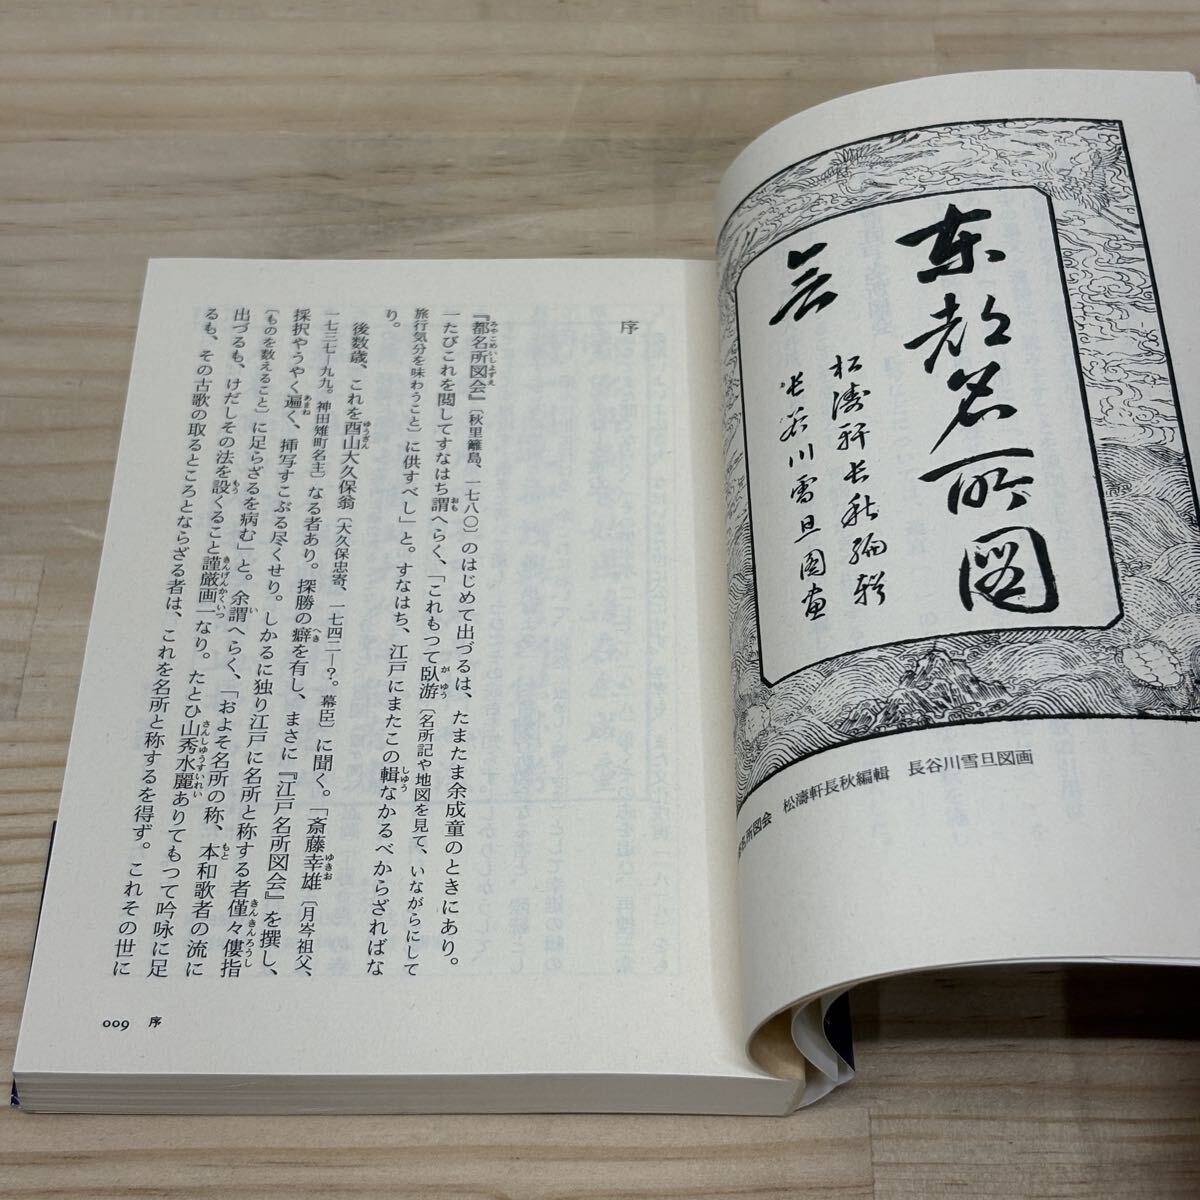 東都名所図
会
松濤軒長秋編輯
長谷川雪旦図画
名所図会 松濤軒長秋編輯 長谷川雪旦図画
序
『都名所図会』〔秋里籬島、一七八〇〕のはじめて出づるは、たまたま余成童のときにあり。
みやこめいしよずえ
一たびこれを閲してすなはち謂へらく、「これもつて臥游〔名所記や地図を見て、いながらにして
おも
がゆう
旅行気分を味わうこと〕に供すべし」と。すなはち、江戸にまたこの輯なかるべからざればな
しゆう
り。
後数歳、これを酉山大久保翁〔大久保忠寄、一七四二―?。幕臣〕に聞く。「斎藤幸雄〔月岑祖父、
ゆうざん
ゆきお
一七三七―九九。神田雉町名主〕なる者あり。探勝の癖を有し、まさに『江戸名所図会』を撰し、
へき
採択やうやく遍く、挿写すこぶる尽くせり。しかるに独り江戸に名所と称する者僅々僂指
あまね
きんきんろうし
〔ものを数えること〕に足らざるを病む」と。余謂へらく、「およそ名所の称、本和歌者の流に
い
もと
出づるも、けだしその法を設くること謹厳画一なり。たとひ山秀水麗ありてもつて吟詠に足
もう
きんげんかくいつ
さんしゆうすいれい
るも、その古歌の取るところとならざる者は、これを名所と称するを得ず。これその世に
009 序